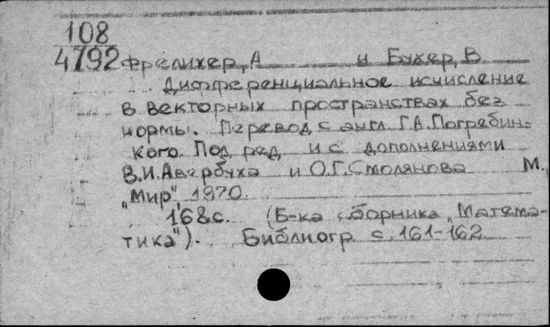 108
4792 Фрелихер, А и Бухер, В
Дифференциальное исчисление
в векторных пространствах без
нормы. Перевод с англ. Г.А.Погребин-
кого. Под ред. и с дополнениями
В.И.Авербуха и О.Г.Смолянова М.,
„Мир", 1970.
168с. (Б-ка сборника „Матема-
тика"). Библиогр. с. 161-162